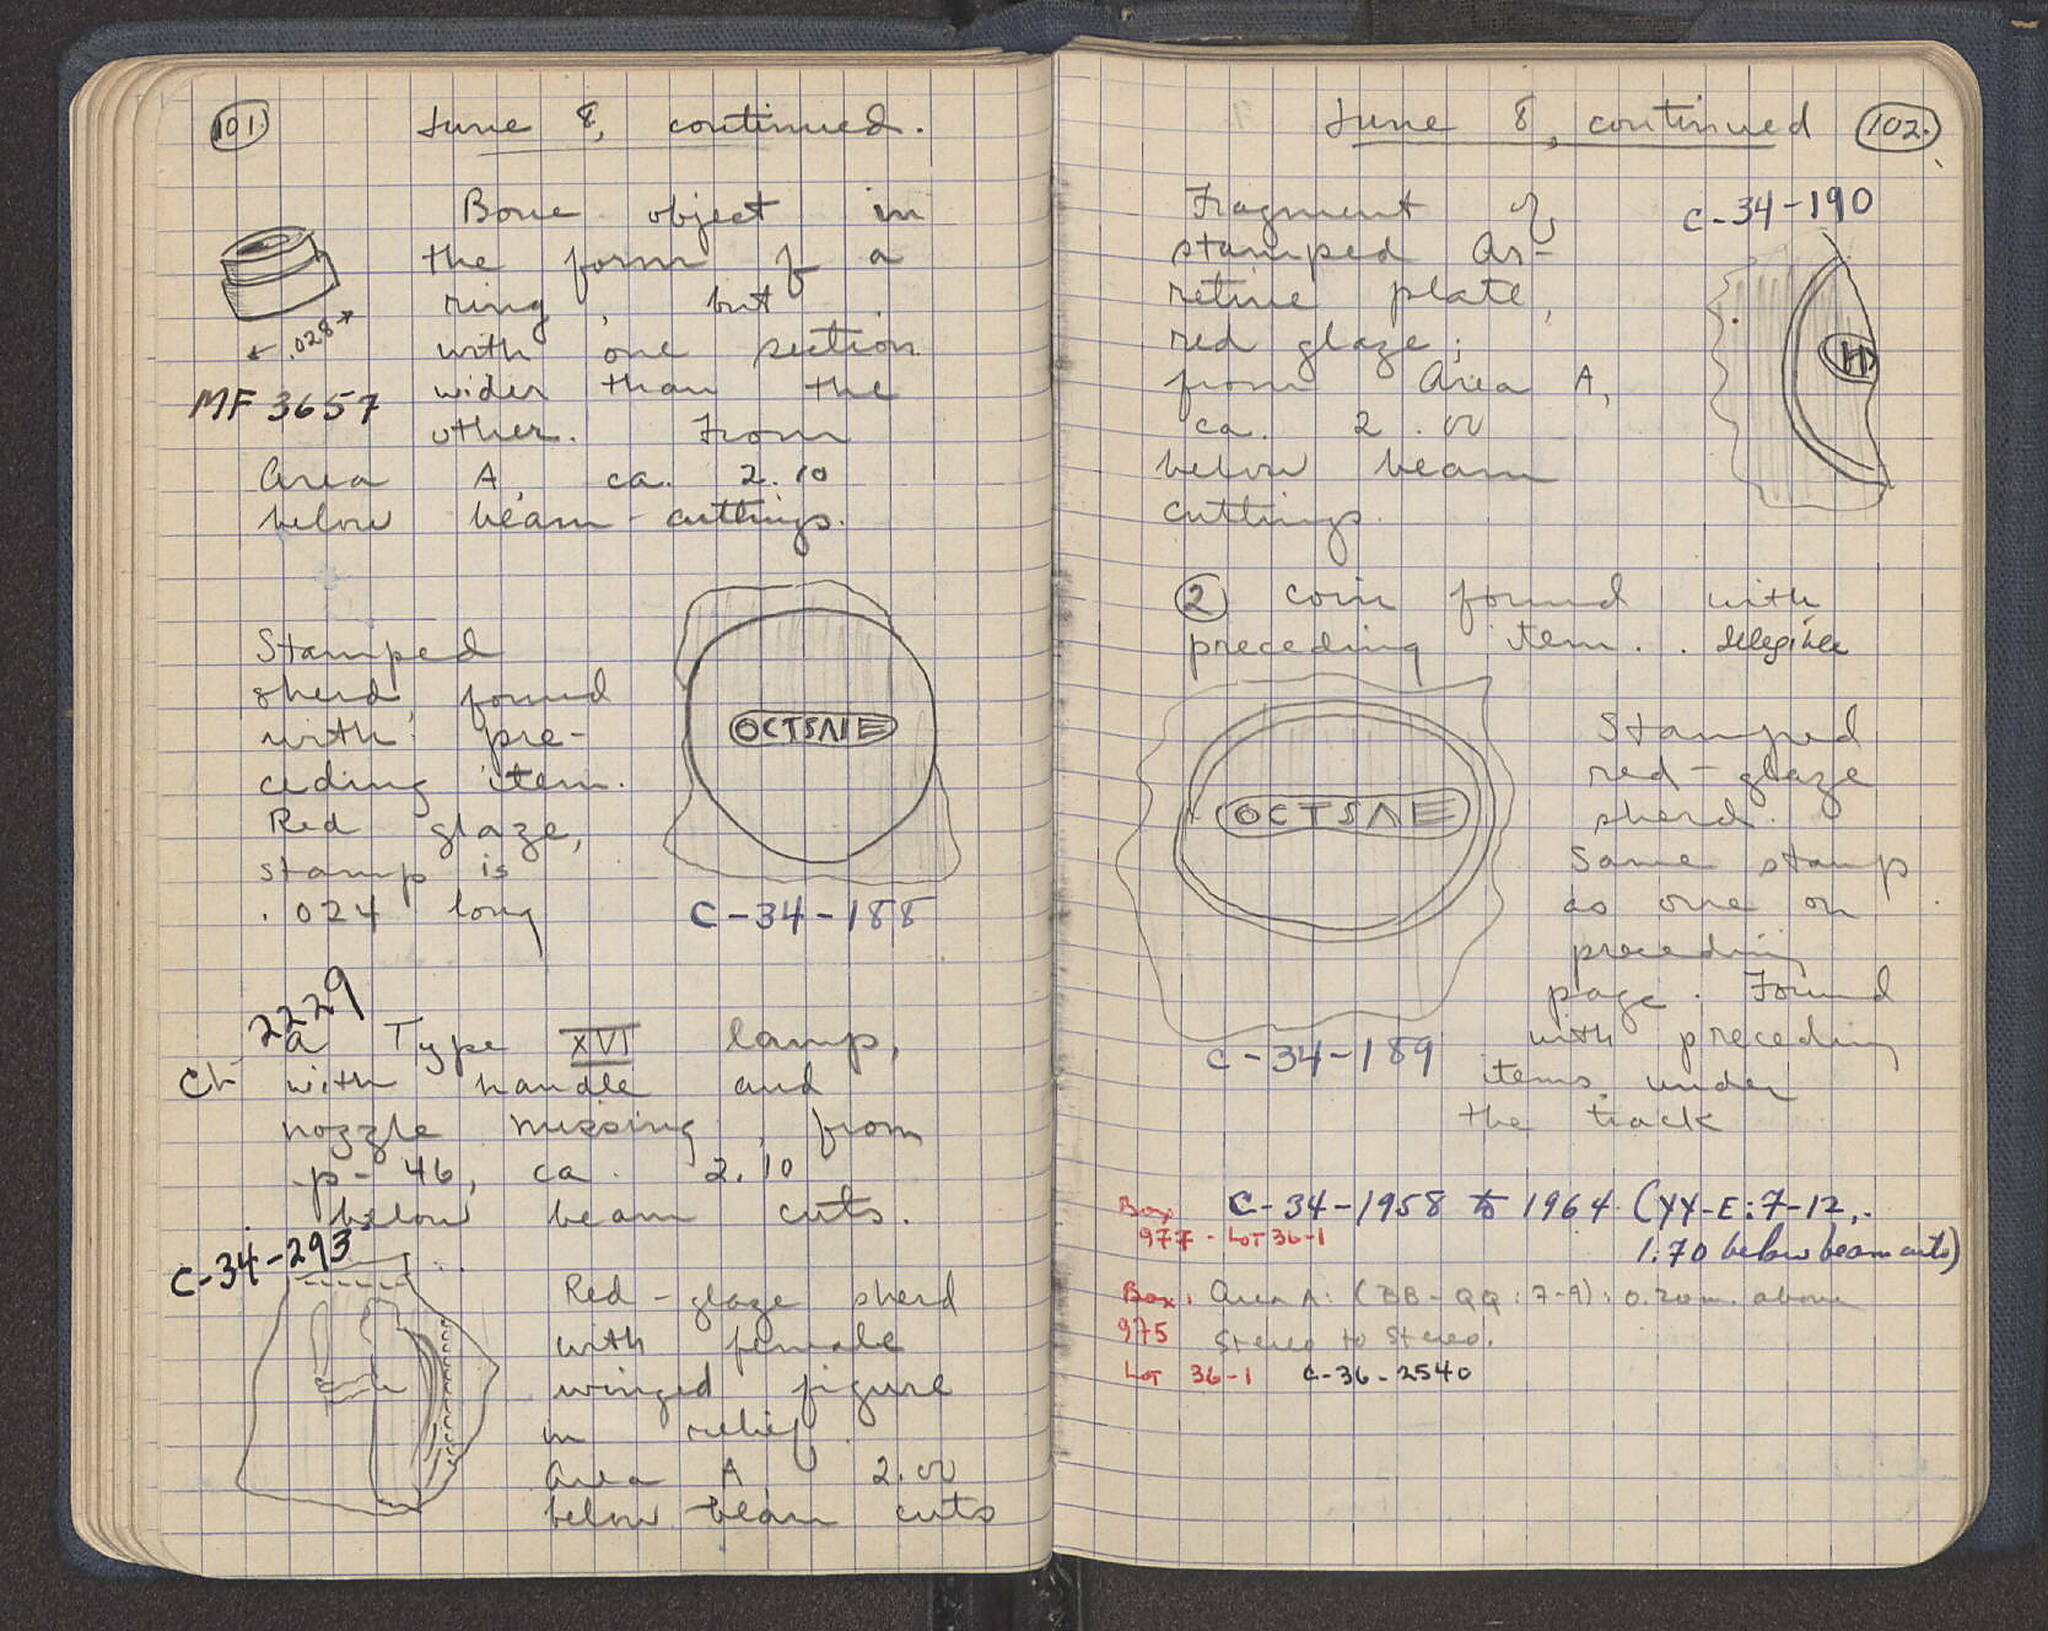 101.
June 8, continued.
Bone object in
the form of a
ring, but
with one section
wider than the
other. From
Area A, ca. 2.10
below beam-cuttings.
← .028 →
MF 3657
Stamped
sherd, found
with pre-
ceding item.
Red glaze,
stamp is
.024 long
OCTSΛVE
C-34-188
2229
a Type XVI lamp,
CL with handle and
nozzle missing, from
p-46, ca. 2.10
below beam cuts.
C-34-293
Red-glaze sherd
with female
winged figure
in relief.
Area A, 2.00
below beam cuts
June 8, continued
102.
Fragment of
stamped Ar-
retine plate,
red glaze;
from Area A,
ca. 2.00
below beam
cuttings.
C-34-190
② coin found with
preceding item. . Illegible
OCTSΛE
C-34-189
Stamped
red-glaze
sherd.
Same stamp
as one on
preceding
page. Found
with preceding
items, under
the track
Box C-34-1958 to 1964 (YY-E:7-12,.
977 - LOT 36-1
1.70 below beam cuts)
Box: Area A: (BB-QQ:7-9): 0.20m. above
975 Stereo to Stereo.
LOT 36-1 C-36-2540